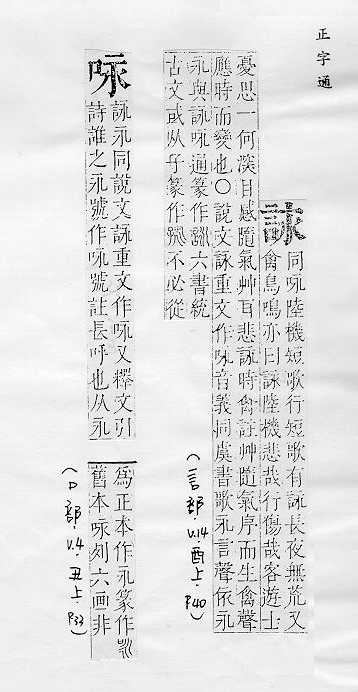 正字通
詠
同咏陸機短歌行短歌有詠長夜無荒又
禽鳥鳴亦曰詠陸機悲哉行傷哉客遊士
憂思一何深目感隨氣艸耳悲詠時禽註艸隨氣序而生禽聲
應時而變也○說文詠重文作咏音義同虞書歌永言聲依永
永與詠咏通篆作六書統
古文或从篆作不必從
(言部.V.14酉上.P40)
咏
詠永同說文詠重文作咏又釋文引
詩誰之永號作咏號註長呼也从永
為正本作永篆作
舊本咏刻六画非
(口部.V.4.丑上.P33)